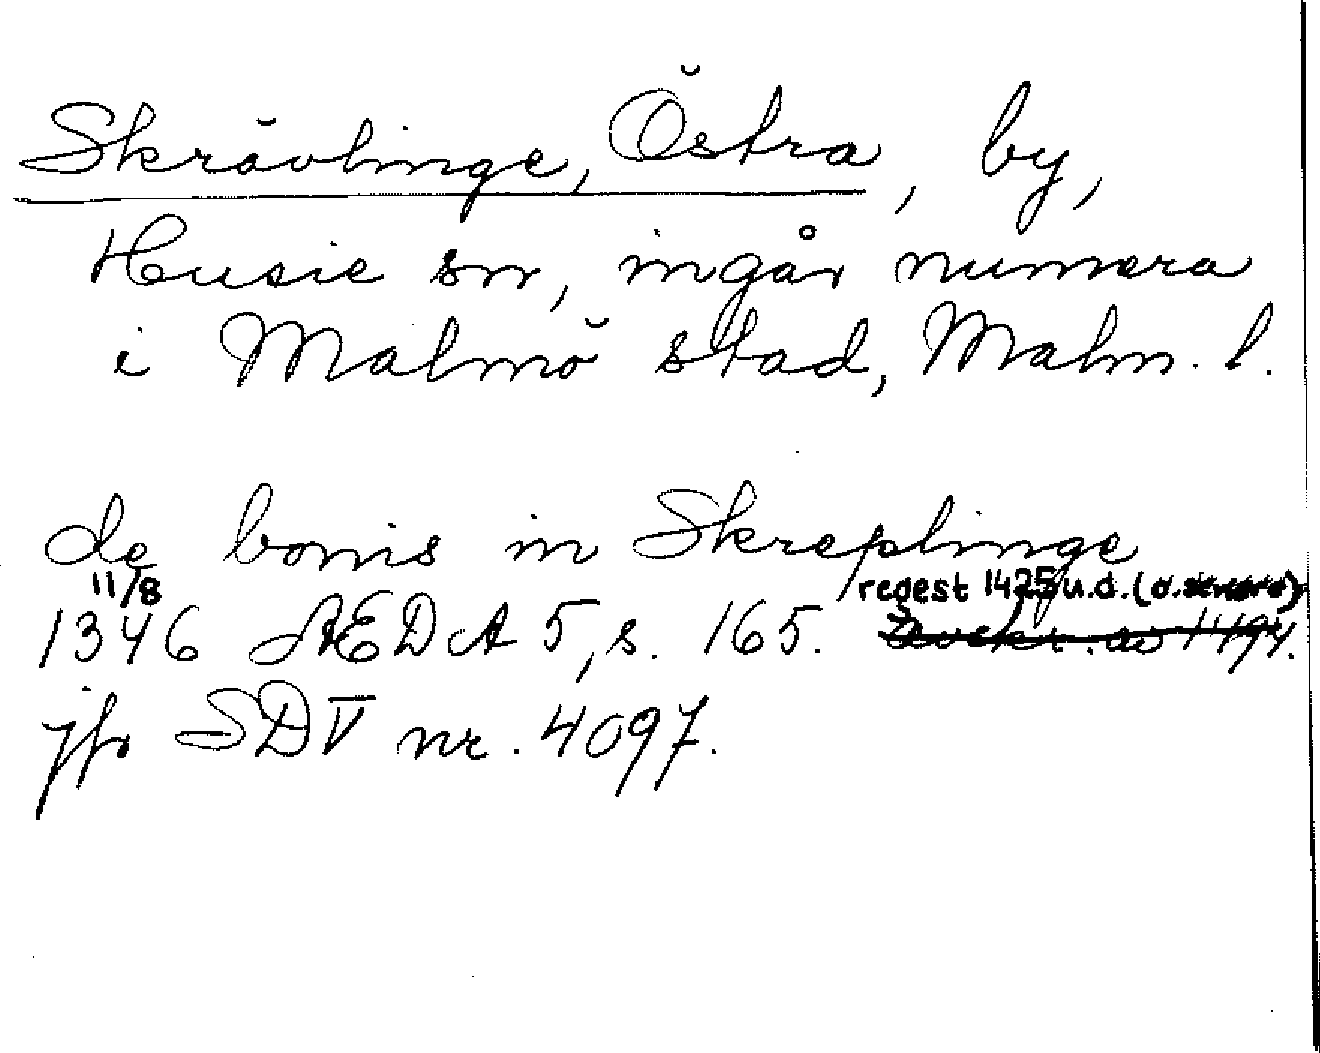 Skrävlinge, Östra, by,
Husie sn, ingår numera
i Malmö stad, Malm. l.
de bonis in Skreplinge
11/8 regest 1425 u.d. (o. senare)
1346 ÆDA 5, s. 165. Avskr. av 1494.
jfr SD V nr. 4097.